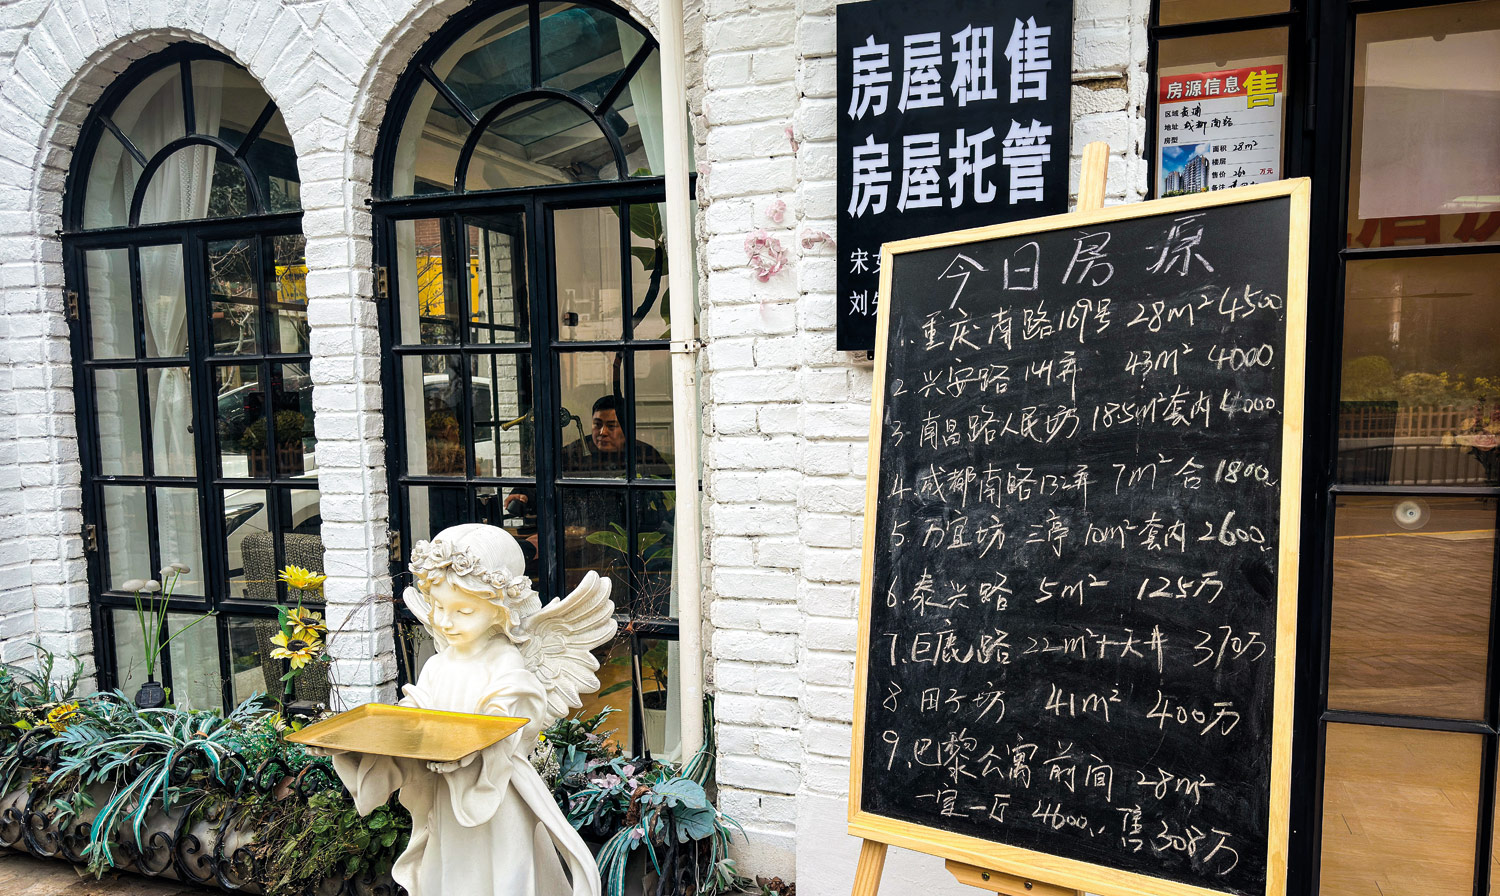 房屋租售
房屋托管
宋
刘
房源信息 售
区域 黄浦
地址 成都南路
房型
面积 28m²
楼层
售价 260 万元
备注
今日房源
1.重庆南路169号 28m² 4500.
2.兴安路141弄 43m² 4000.
3.南昌路人民坊 18.5m²套内 4000.
4.成都南路132弄 7m²合 1800.
5.万宜坊 三亭 10m²套内 2600.
6.泰兴路 5m² 125万
7.巨鹿路 22m²+天井 370万
8 田子坊 41m² 400万
9.巴黎公寓 前间 28m²
一室一厅 4600.. 售308万